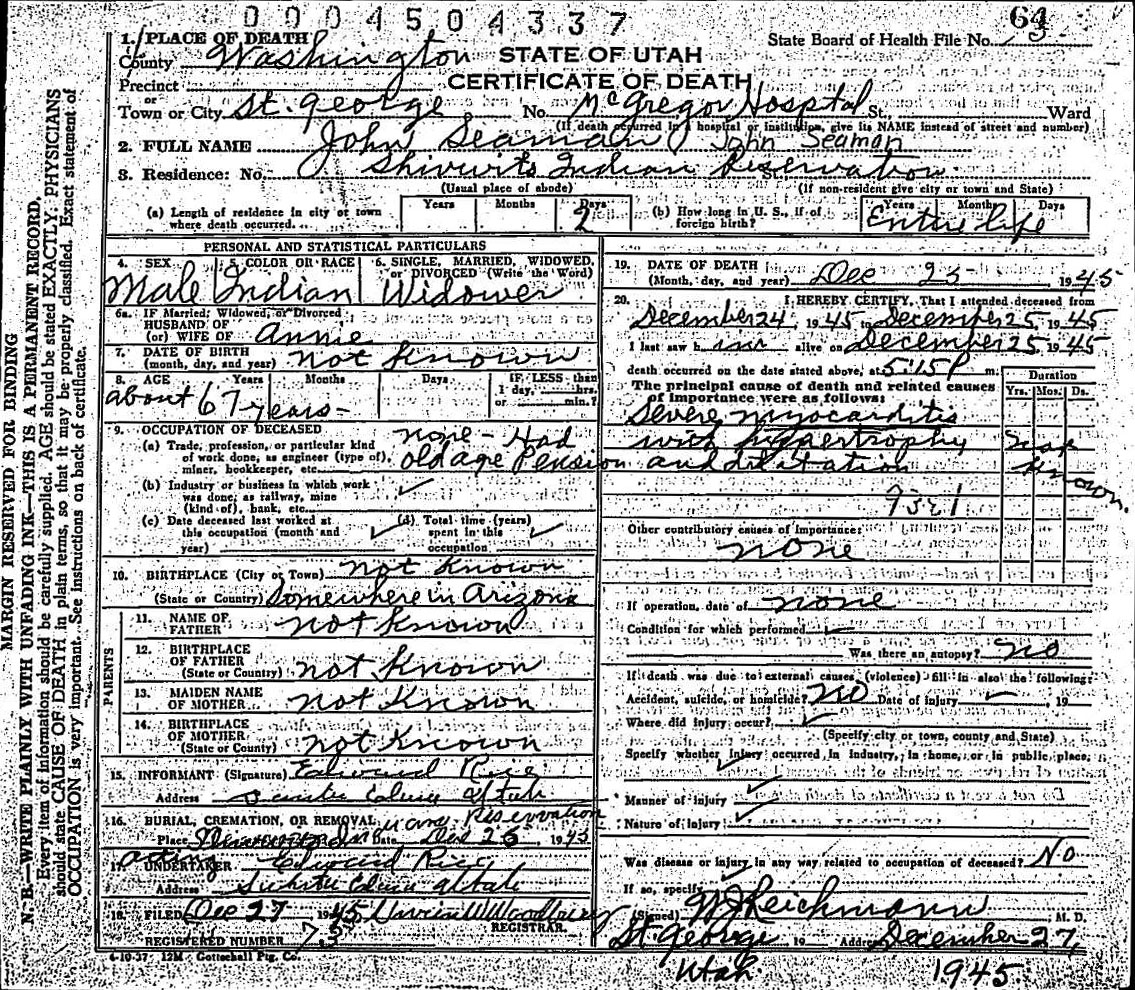 0004504337
64
State Board of Health File No. 73
1. PLACE OF DEATH
County Washington
STATE OF UTAH
Precinct
CERTIFICATE OF DEATH
or
Town or City St. George No. McGregor Hospital St. Ward
(If death occurred in a hospital or institution, give its NAME instead of street and number)
2. FULL NAME John Seaman John Seaman
3. Residence: No. Shivwits Indian Reservation
(Usual place of abode) (If non-resident give city or town and State)
(a) Length of residence in city or town where death occurred Years Months Days 2
(b) How long in U. S., if of foreign birth? Years Months Days Entire life
PERSONAL AND STATISTICAL PARTICULARS
4. SEX Male
5. COLOR OR RACE Indian
6. SINGLE, MARRIED, WIDOWED, or DIVORCED (Write the Word) Widower
6a. IF Married, Widowed, or Divorced
HUSBAND OF
(or) WIFE OF Annie
7. DATE OF BIRTH
(month, day, and year) not known
8. AGE Years Months Days IF LESS than
1 day, hrs.
or min.?
about 67 years-
9. OCCUPATION OF DECEASED
(a) Trade, profession, or particular kind
of work done, as engineer (type of),
miner, bookkeeper, etc.
none - Had
old age Pension
(b) Industry or business in which work
was done, as railway, mine
(kind of), bank, etc. ✓
(c) Date deceased last worked at
this occupation (month and
year) ✓
(d) Total time (years)
spent in this
occupation ✓
10. BIRTHPLACE (City or Town) not known
(State or Country) Somewhere in Arizona
PARENTS
11. NAME OF
FATHER not known
12. BIRTHPLACE
OF FATHER
(State or County) not known
13. MAIDEN NAME
OF MOTHER not known
14. BIRTHPLACE
OF MOTHER
(State or County) not known
15. INFORMANT (Signature) Edward Rice
Address Santa Clara Utah
16. BURIAL, CREMATION, OR REMOVAL
Reservation
Place Shivwits Ind Date Dec 26, 1945
acting
17. UNDERTAKER Edward Rice
Address Santa Clara Utah
18. FILED Dec 27 1945 Woodbury
REGISTRAR.
REGISTERED NUMBER 73
4-10-37 12M Gottschall Ptg. Co.
19. DATE OF DEATH
(Month, day, and year) Dec 25 1945
20. I HEREBY CERTIFY, That I attended deceased from
December 24, 1945 to December 25, 1945
I last saw him alive on December 25, 1945
death occurred on the date stated above, at 5:15 P m.
The principal cause of death and related causes
of importance were as follows:
Duration
Yrs. Mos. Ds.
Severe myocarditis
with hypertrophy
and dilitation
not
known.
Other contributory causes of importance:
none
If operation, date of none
Condition for which performed ✓
Was there an autopsy? no
If death was due to external causes (violence) fill in also the following:
Accident, suicide, or homicide? No Date of injury ✓, 19
Where did injury occur? ✓
(Specify city or town, county and State)
Specify whether injury occurred in industry, in home, or in public place,
✓
Manner of injury ✓
Nature of injury ✓
Was disease or injury in any way related to occupation of deceased? No
If so, specify ✓
(Signed) W J Reichmann M. D.
St. George 19 Address December 27,
Utah. 1945
MARGIN RESERVED FOR BINDING
N. B.—WRITE PLAINLY WITH UNFADING INK—THIS IS A PERMANENT RECORD.
Every item of information should be carefully supplied. AGE should be stated EXACTLY, PHYSICIANS
should state CAUSE OF DEATH in plain terms, so that it may be properly classified. Exact statement of
OCCUPATION is very important. See instructions on back of certificate.